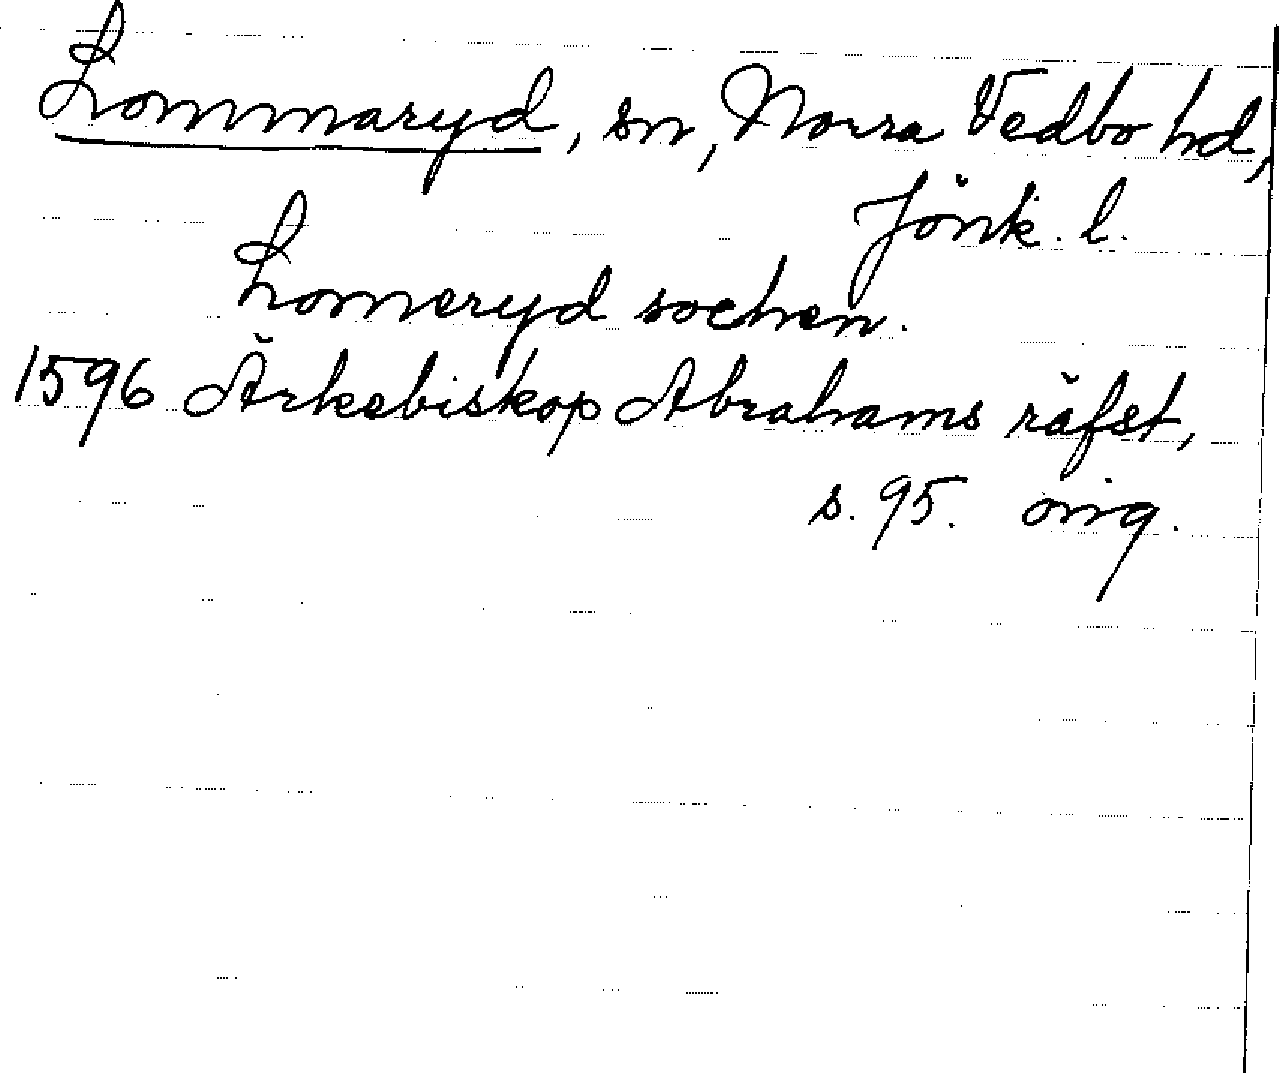 Lommaryd, sn, Norra Vedbo hd,
Jönk. l.
Lomeryd sochen.
1596 Ärkebiskop Abrahams räfst,
s. 95. orig.